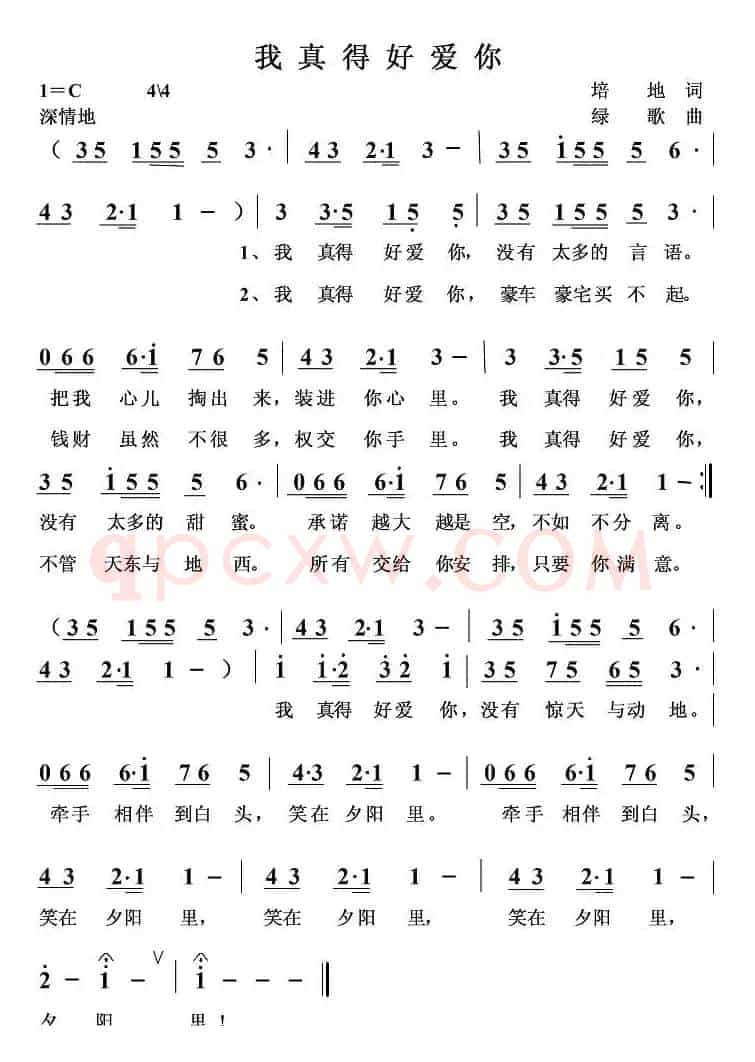 我真得好爱你
1=C 4\4 培地词
深情地 绿歌曲
（ 3 5 1 5 5 5 3 · | 4 3 2·1 3 － | 3 5 i 5 5 5 6 · |
4 3 2·1 1 － ） | 3 3·5 1 5 5 | 3 5 1 5 5 5 3 · |
1、我 真得 好爱你，没有 太多的 言语。
2、我 真得 好爱你，豪车 豪宅买 不起。
0 6 6 6·i 7 6 5 | 4 3 2·1 3 － | 3 3·5 1 5 5 |
把我 心儿 掏出 来，装进 你心里。 我 真得 好爱你，
钱财 虽然 不很 多，权交 你手里。 我 真得 好爱你，
3 5 i 5 5 5 6 · | 0 6 6 6·i 7 6 5 | 4 3 2·1 1 － :‖
没有 太多的 甜蜜。 承诺 越大 越是 空，不如 不分离。
不管 天东与 地西。 所有 交给 你安排，只要 你满意。
qpcxw.COM
（ 3 5 1 5 5 5 3 · | 4 3 2·1 3 － | 3 5 i 5 5 5 6 ·
4 3 2·1 1 － ） | i i·2 3 2 i | 3 5 7 5 6 5 3 · |
我 真得 好爱你，没有 惊天 与动地。
0 6 6 6·i 7 6 5 | 4·3 2·1 － | 0 6 6 6·i 7 6 5 |
牵手 相伴 到白头，笑在 夕阳里。 牵手 相伴 到白头，
4 3 2·1 1 － | 4 3 2·1 1 － | 4 3 2·1 1 － |
笑在 夕阳 里， 笑在 夕阳里， 笑在 夕阳里，
2 － i － ∨ | i － － － ‖
夕 阳 里！